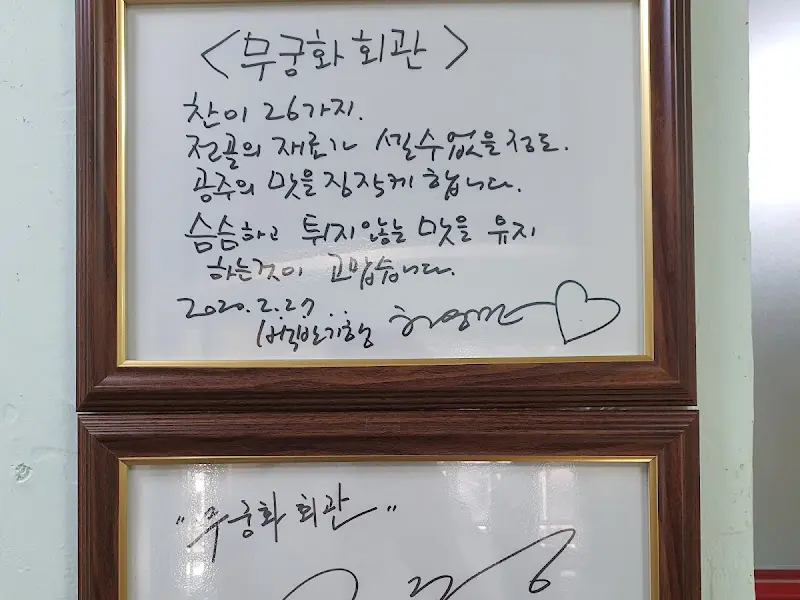 <무궁화 회관>
찬이 26가지.
전골의 재료가 셀수없을정도.
공주의 맛을 짐작케 합니다.
슴슴하고 튀지않는 맛을 유지
하는것이 고맙습니다.
2020.2.27
백반기행 허영만
"무궁화 회관"